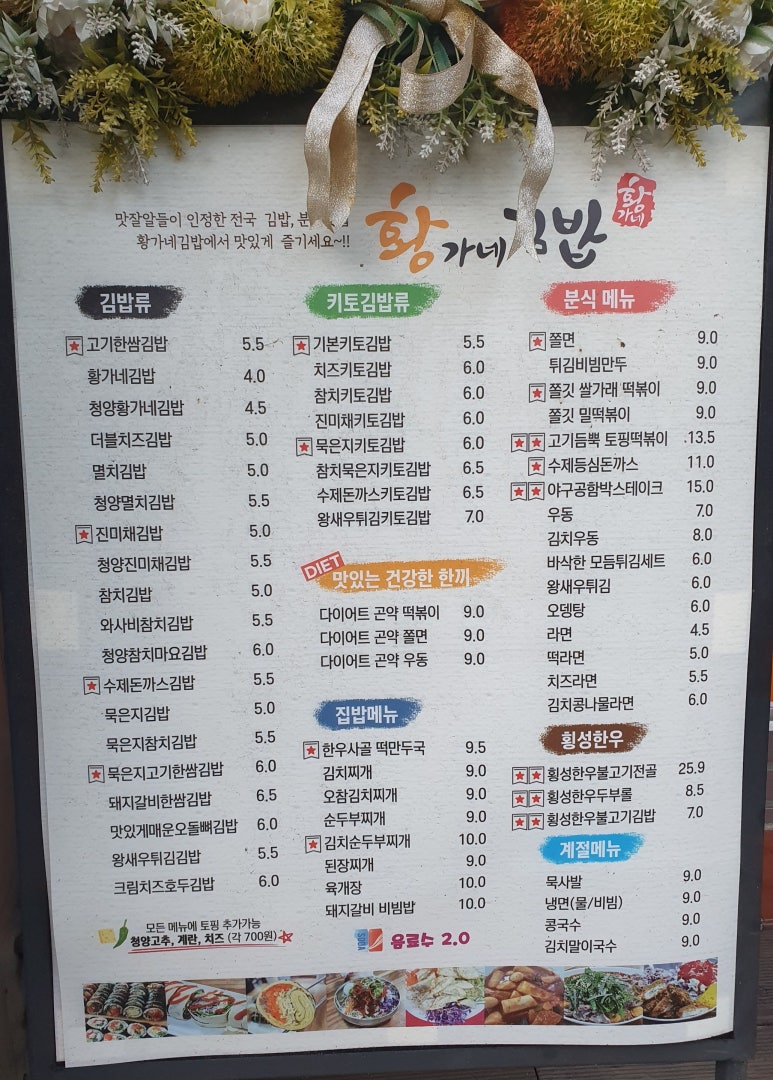 맛잘알들이 인정한 전국 김밥,
황가네김밥에서 맛있게 즐기세요~!!
황가네김밥
황가네
김밥류
고기한쌈김밥 5.5
황가네김밥 4.0
청양황가네김밥 4.5
더블치즈김밥 5.0
멸치김밥 5.0
청양멸치김밥 5.5
진미채김밥 5.0
청양진미채김밥 5.5
참치김밥 5.0
와사비참치김밥 5.5
청양참치마요김밥 6.0
수제돈까스김밥 5.5
묵은지김밥 5.0
묵은지참치김밥 5.5
묵은지고기한쌈김밥 6.0
돼지갈비한쌈김밥 6.5
맛있게매운오돌뼈김밥 6.0
왕새우튀김김밥 5.5
크림치즈호두김밥 6.0
모든 메뉴에 토핑 추가가능
청양고추, 계란, 치즈 (각 700원)
키토김밥류
기본키토김밥 5.5
치즈키토김밥 6.0
참치키토김밥 6.0
진미채키토김밥 6.0
묵은지키토김밥 6.0
참치묵은지키토김밥 6.5
수제돈까스키토김밥 6.5
왕새우튀김키토김밥 7.0
DIET
맛있는 건강한 한끼
다이어트 곤약 떡볶이 9.0
다이어트 곤약 쫄면 9.0
다이어트 곤약 우동 9.0
집밥메뉴
한우사골 떡만두국 9.5
김치찌개 9.0
오참김치찌개 9.0
순두부찌개 9.0
김치순두부찌개 10.0
된장찌개 9.0
육개장 10.0
돼지갈비 비빔밥 10.0
SODA
음료수 2.0
분식 메뉴
쫄면 9.0
튀김비빔만두 9.0
쫄깃 쌀가래 떡볶이 9.0
쫄깃 밀떡볶이 9.0
고기듬뿍 토핑떡볶이 13.5
수제등심돈까스 11.0
야구공함박스테이크 15.0
우동 7.0
김치우동 8.0
바삭한 모듬튀김세트 6.0
왕새우튀김 6.0
오뎅탕 6.0
라면 4.5
떡라면 5.0
치즈라면 5.5
김치콩나물라면 6.0
횡성한우
횡성한우불고기전골 25.9
횡성한우두부롤 8.5
횡성한우불고기김밥 7.0
계절메뉴
묵사발 9.0
냉면(물/비빔) 9.0
콩국수 9.0
김치말이국수 9.0